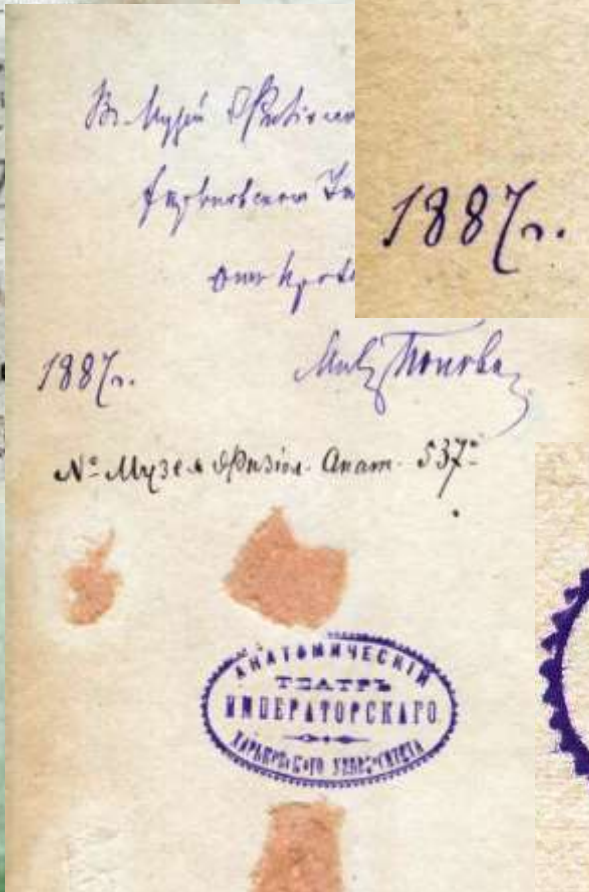 Въ Музей Физіол
Харьковскаго Ун
отъ Проф
1887г.
1887г.
Попова
№ Музея Физіол. Анат. 537
АНАТОМИЧЕСКІЙ
ТЕАТРЪ
ИМПЕРАТОРСКАГО
ХАРЬКОВСКАГО УНИВЕРСИТЕТА